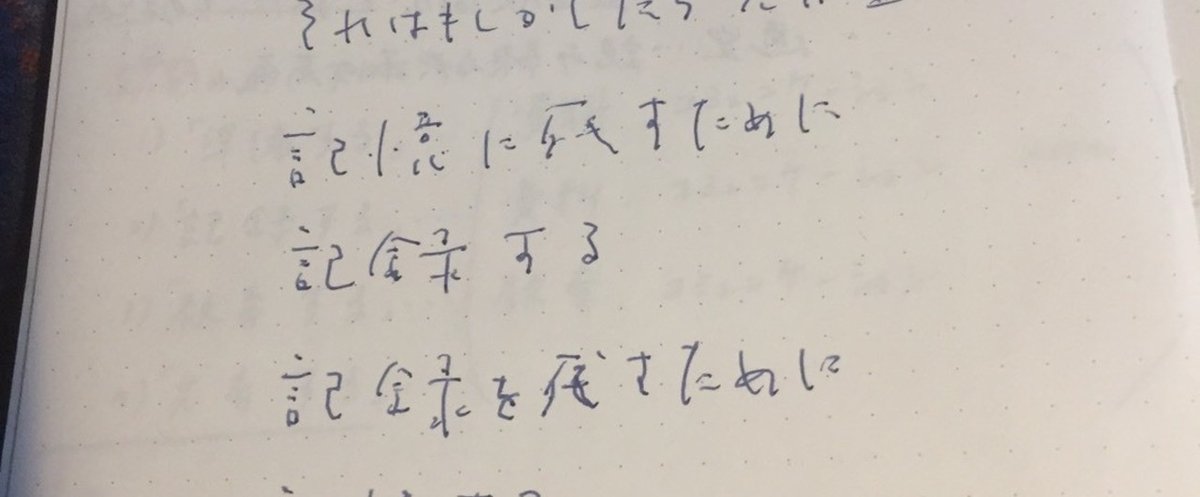 それはもしかしたら
記憶に残すために
記録する
記録を残すために